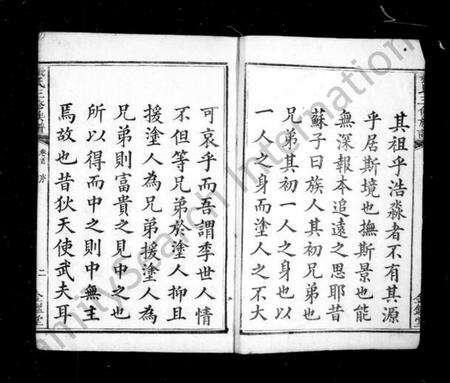 其祖乎浩淼者不有其源
乎居斯境也撫斯景也能
無深報本追遠之思耶昔
蘇子曰族人其初兄弟也
兄弟其初一人之身也以
一人之身而塗人之不大
可哀乎而吾謂季世人情
不但等兄弟於塗人抑且
援塗人為兄弟援塗人為
兄弟則富貴之見中之也
所以得而中之則中無主
焉故也昔狄天使武夫耳
氏三修族譜
卷首 序
二
FamilySearch International